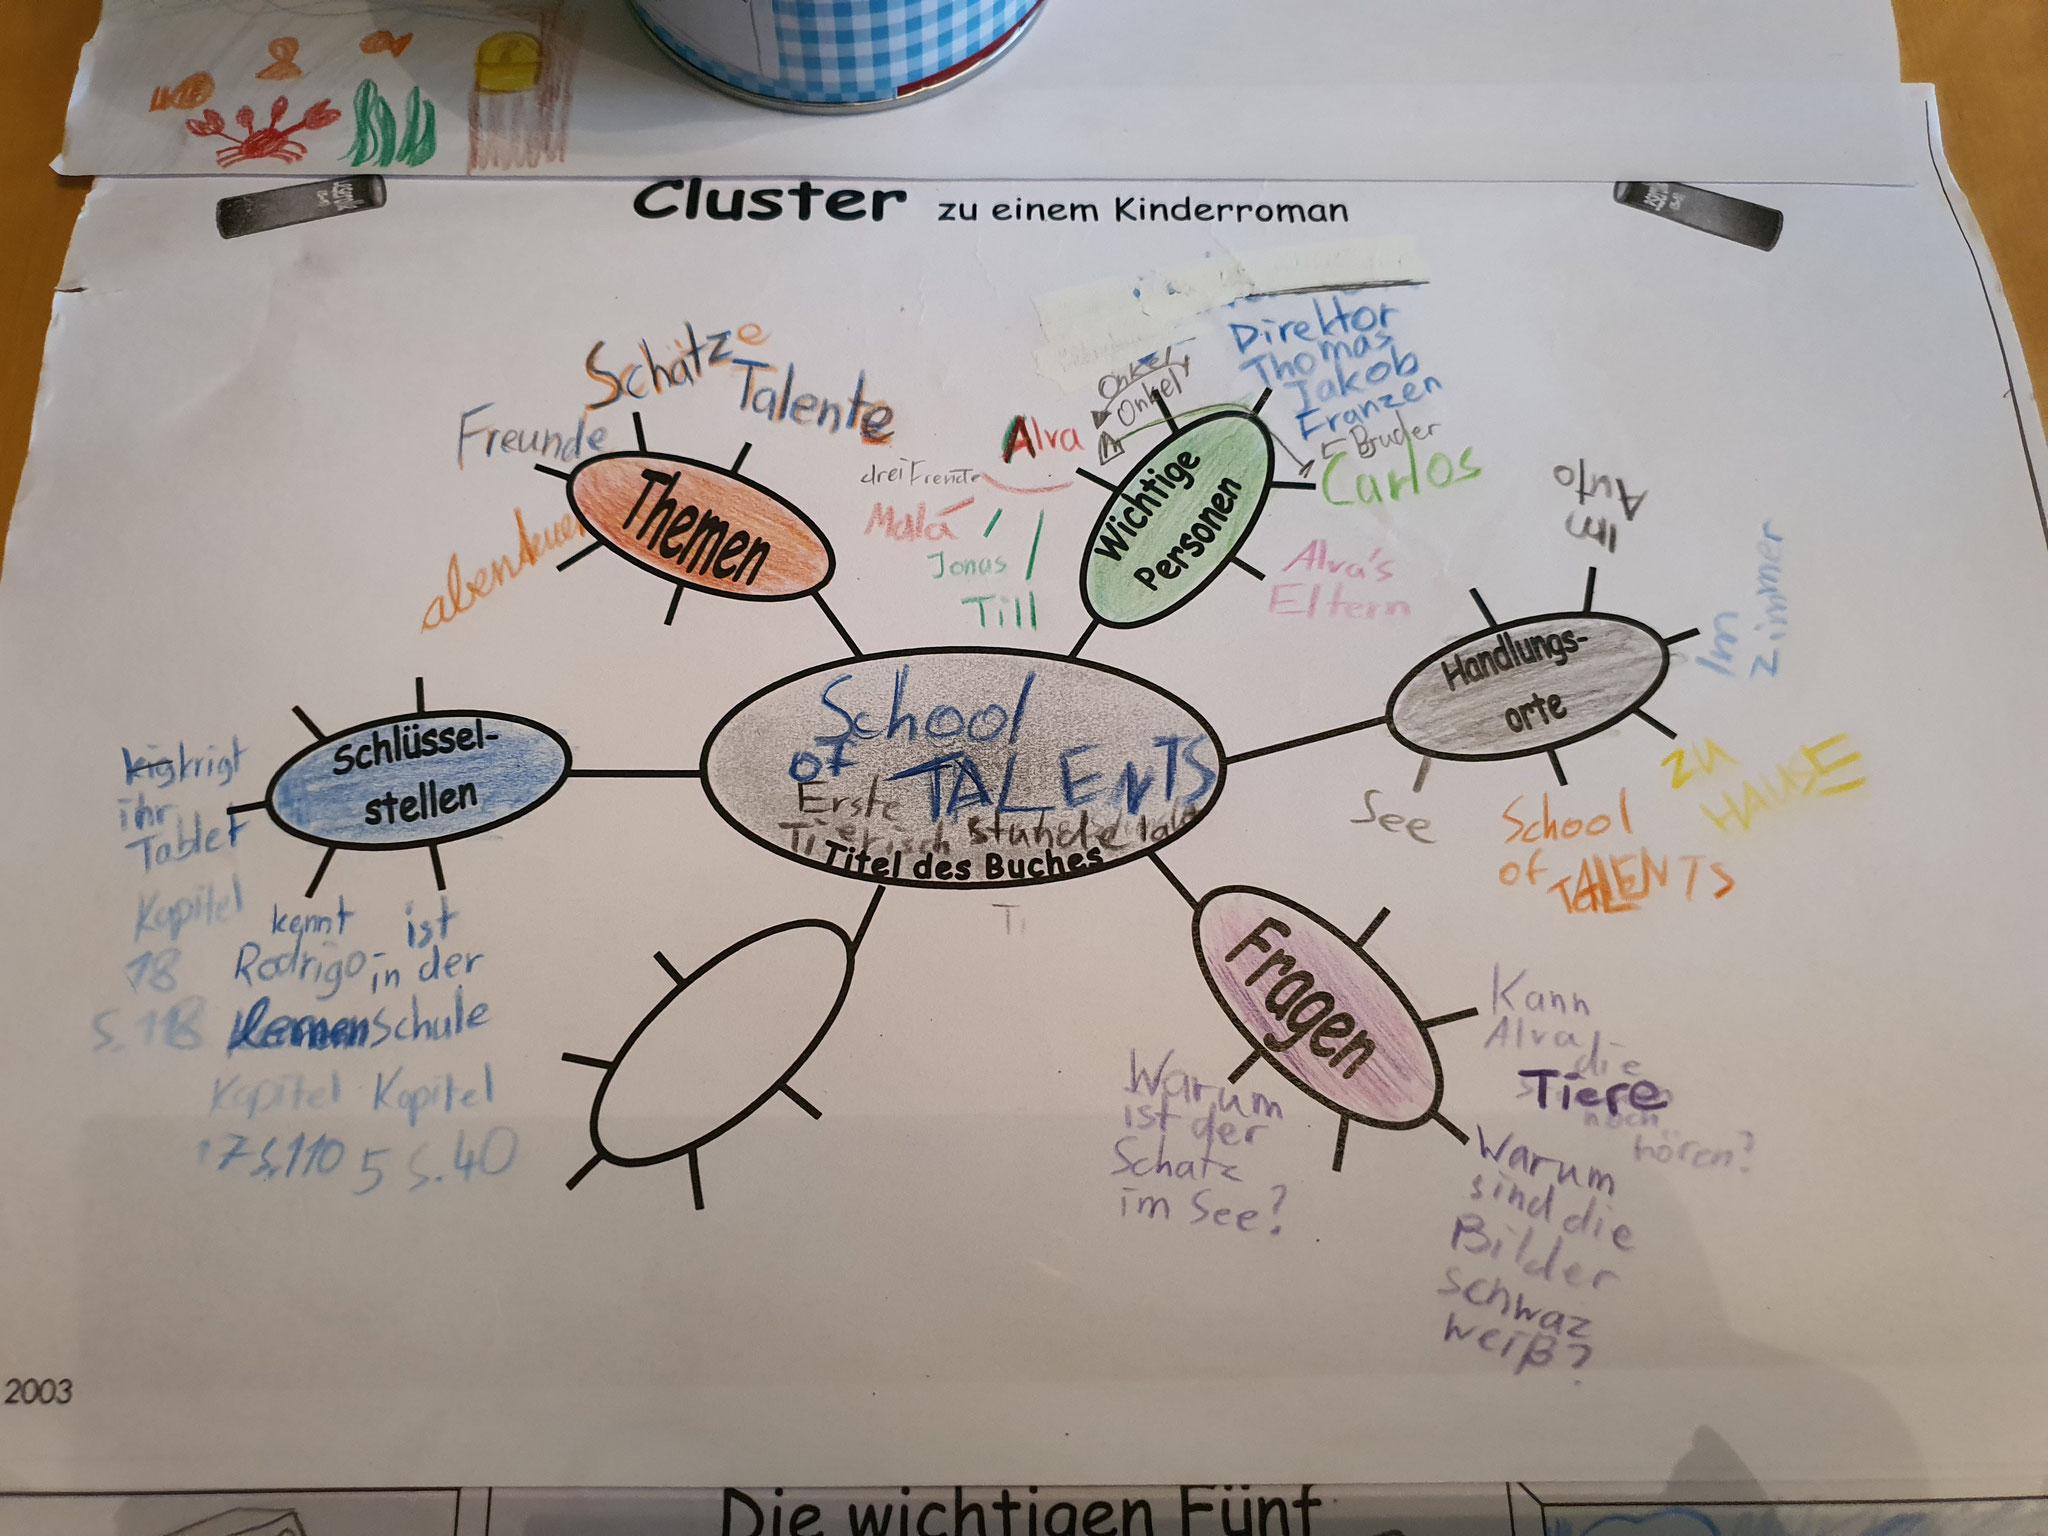 Cluster zu einem Kinderroman
Schätze
Talente
Freunde
abenteuer
Themen
Direktor
Thomas
Jakob
Franzen
Onkel
Onkel
Bruder
Carlos
Alva
drei Freunde
Malá
Jonas
Till
Wichtige
Personen
Alva's
Eltern
Im
Auto
Im
Zimmer
Handlungs-
orte
zu
HAUSE
See
School
of TALENTS
School
of TALENTS
Erste
Stunde
Tierisch
Titel des Buches
Ti
Schlüssel-
stellen
krigt
ihr
Tablet
Kapitel
18
S. 118
kennt
Rodrigo
lernen
Kapitel
17 S. 110
ist
in der
Schule
Kapitel
5 S. 40
Fragen
Kann
Alva
die
Tiere
noch
hören?
Warum
ist der
Schatz
im See?
Warum
sind die
Bilder
schwaz
weiß?
2003
Die wichtigen Fünf